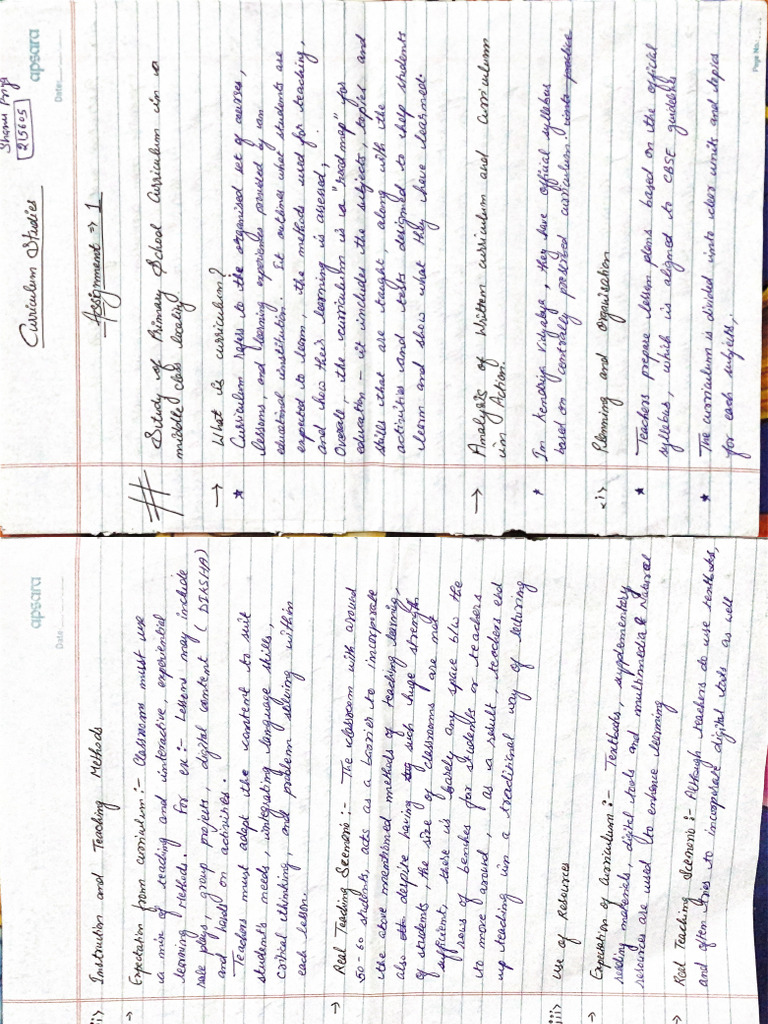 Shanu Priya
215605
apsara
Date:
Curriculum Studies
Assignment ⇒ 1
# Study of Primary School Curriculum in a
middle class locality
→ What is curriculum?
★ Curriculum refers to the organised set of courses,
lessons, and learning experiences provided by an
educational institution. It outlines what students are
expected to learn, the methods used for teaching,
and how their learning is assessed,
Overall, the curriculum is a "road map" for
education - it includes the subjects, topics and
skills that are taught, along with the
activities and tests designed to help students
learn and show what they have learned.
→ Analysis of Written curriculum and curriculum
in Action.
★ In Kendriya Vidyalya, they have official syllabus
based on centrally prescribed curriculum. into practice
<i> Planning and Organisation
★ Teachers prepare lesson plans based on the official
syllabus, which is aligned to CBSE guidelines
★ The curriculum is divided into clear units and topics
for each subjects,
Page No.
apsara
Date
ii> Instruction and Teaching Methods
→ Expectation from curriculum:- Classrooms must use
a mix of teaching and interactive, experiential
learning methods. For ex:- Lessons may include
role plays, group projects, digital content (DIKSHA)
and hands on activities.
Teachers must adapt the content to suit
students needs, integrating language skills,
critical thinking, and problem solving within
each lesson.
→ Real Teaching Scenerio:- The classroom with around
50-60 students, acts as a barrier to incorporate
the above mentioned methods of teaching learning,
also despite having such huge strength
of students, the size of classrooms are not
sufficient, there is barely any space b/w the
rows of benches for students or teachers
to move around, as a result, teachers end
up teaching in a traditional way of lecturing
iii> Use of Resources
→ Expectation of Curriculum:- Textbooks, supplementary
reading materials, digital tools and multimedia & Natural
resources are used to enhance learning
→ Real Teaching Scenerio:- Although teachers do use textbooks,
and often tries to incorporate digital tools as well